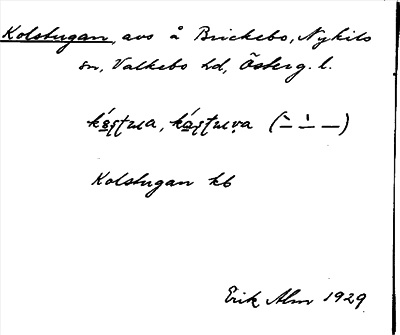 Kolstugan, avs å Brickebo, Nykils
sn, Valkebo hd, Österg. l.
Kolstugan kb
Erik Alm 1929